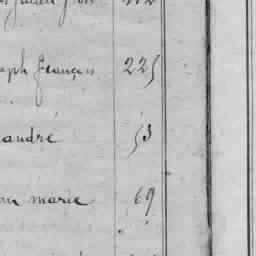 aph françois 225
andré 53
an marie 69